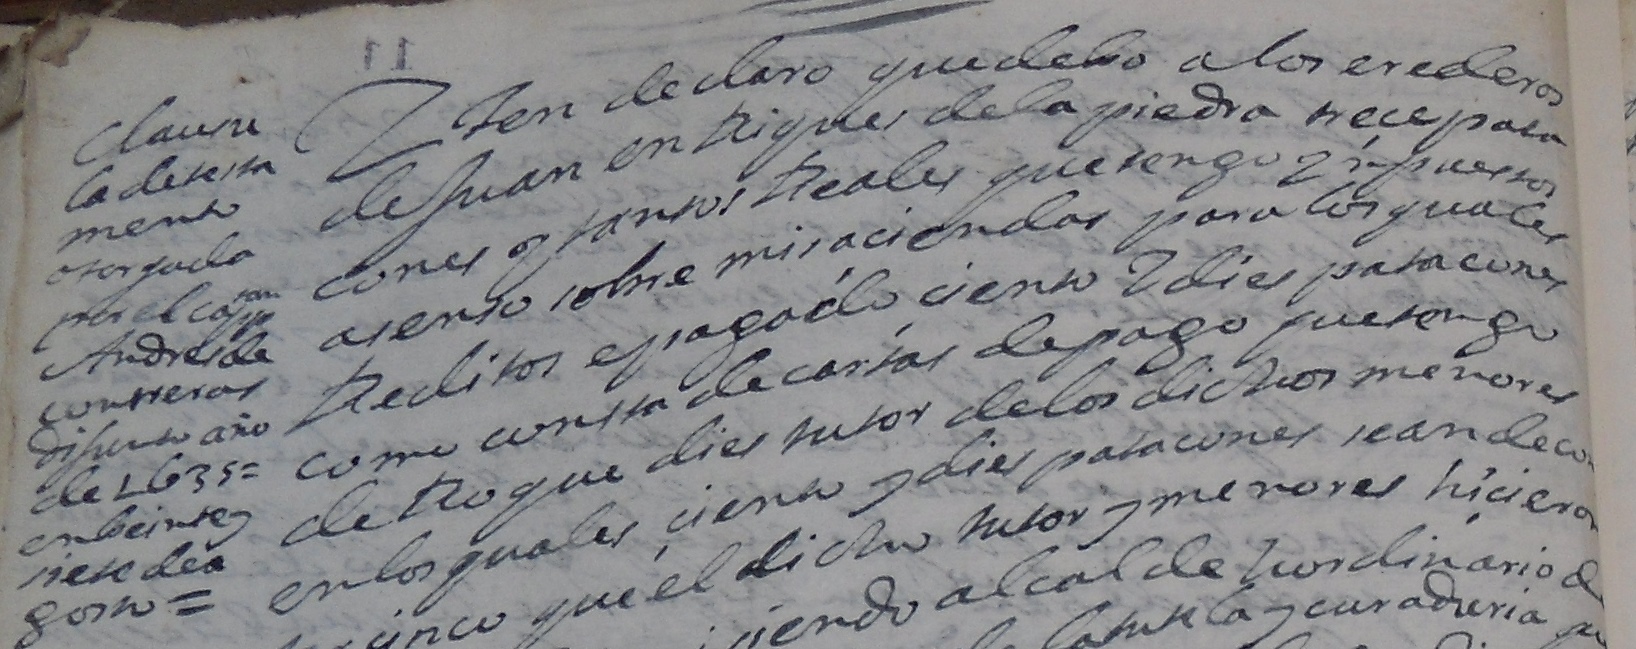 Clausu
la de testa
mento
otorgada
por el capitan
Andres de
contreras
difunto año
de 1635=
en beinte y
siete de a
gosto=
Yten declaro que debo a los erederos
de Juan enrriques de la piedra trece pata
cones y tantos rreales que tengo ynpuestos
a senso sobre mis aciendas para los quales
rreditos e pagado ciento y dies patacones
como consta de cartas de pago que tengo
de rroque dies tutor de los dichos menores
en los quales ciento y dies patacones sean de con
cinco que el dicho tutor y menores hicieron
siendo alcalde hordinario de
la tutela y curaduria